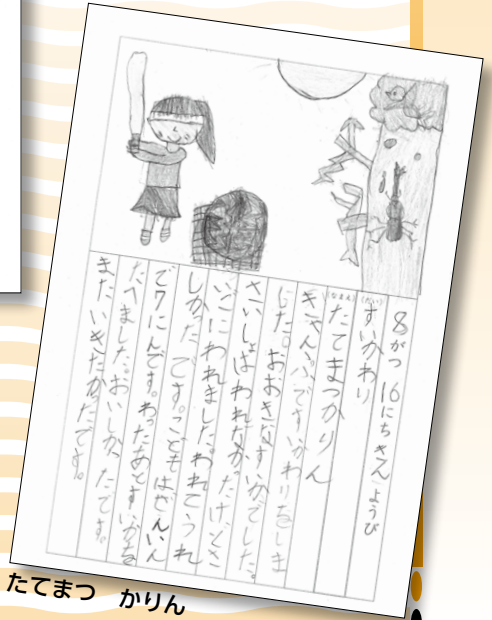 8がつ 16にち きんようび
(だい)
すいかわり
(なまえ)
たてまつかりん
きゃんぷですいかわりをしま
した。おおきなすいかでした。
さいしょはわれなかったけどさ
いごにわれました。われてうれ
しかったです。こどもはぜんいん
で7にんです。わったあとすいかを
たべました。おいしかったです。
またいきたかったです。
たてまつ かりん